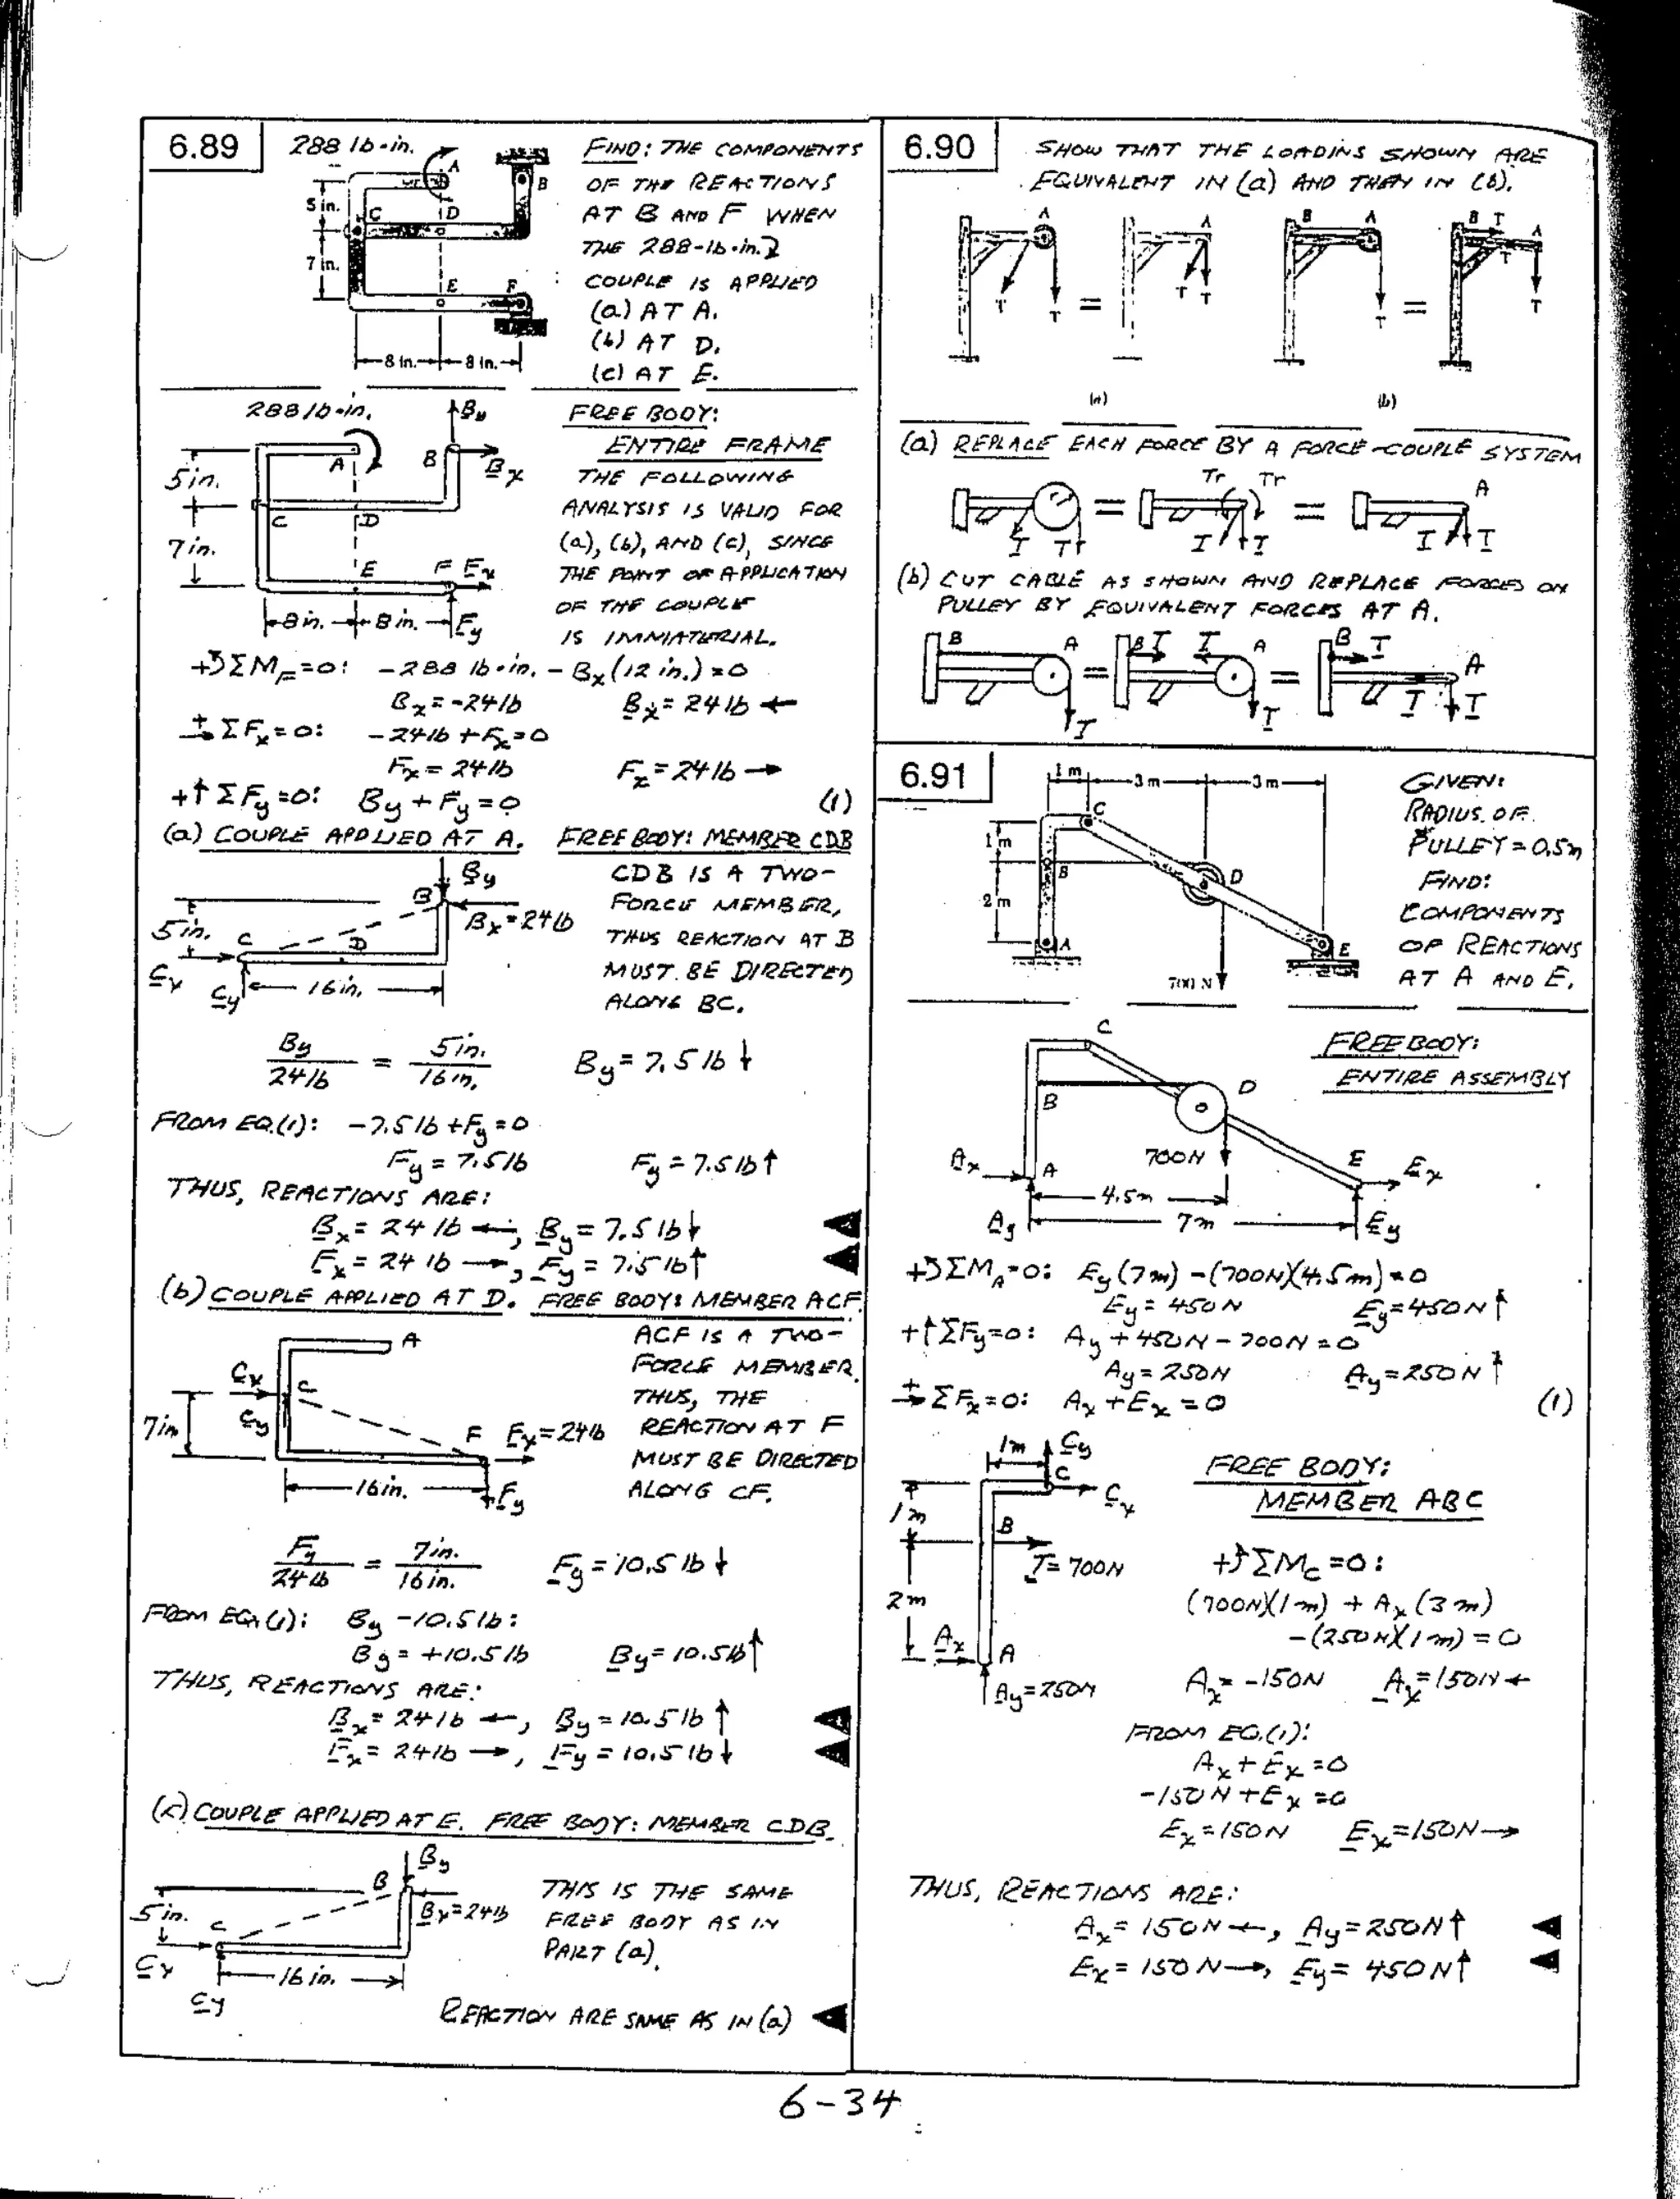 6.89
288 lb·in.
A
B
5 in.
C
D
7 in.
E
F
8 in.
8 in.
FIND: THE COMPONENTS
OF THE REACTIONS
AT B AND F WHEN
THE 288-lb·in.
COUPLE IS APPLIED
(a) AT A.
(b) AT D.
(c) AT E.
288 lb·in.
By
A
B
Bx
5in.
C
D
7in.
E
F
Fx
8in.
8in.
Fy
FREE BODY:
ENTIRE FRAME
THE FOLLOWING
ANALYSIS IS VALID FOR
(a), (b), AND (c), SINCE
THE POINT OF APPLICATION
OF THE COUPLE
IS IMMATERIAL.
+↺ΣM_F=0: -288 lb·in. - Bx(12 in.)=0
Bx=-24lb Bx=24lb ←
+→ΣFx=0: -24lb+Fx=0
Fx=24lb Fx=24lb →
+↑ΣFy=0: By+Fy=0 (1)
(a) COUPLE APPLIED AT A. FREE BODY: MEMBER CDB
By
B
Bx=24lb
5in.
C
D
Cx
Cy
16in.
CDB IS A TWO-
FORCE MEMBER,
THUS REACTION AT B
MUST BE DIRECTED
ALONG BC.
By/24lb = 5in./16in. By=7.5lb ↓
FROM EQ.(1): -7.5lb+Fy=0
Fy=7.5lb Fy=7.5lb↑
THUS, REACTIONS ARE:
Bx=24 lb ←, By=7.5lb↓
Fx=24 lb →, Fy=7.5lb↑
(b) COUPLE APPLIED AT D. FREE BODY: MEMBER ACF.
A
Cx
C
Cy
7in
F
Fx=24lb
16in.
Fy
ACF IS A TWO-
FORCE MEMBER.
THUS, THE
REACTION AT F
MUST BE DIRECTED
ALONG CF.
Fy/24lb = 7in./16in. Fy=10.5lb↓
FROM EQ.(1): By-10.5lb:
By=+10.5lb By=10.5lb↑
THUS, REACTIONS ARE:
Bx=24lb ←, By=10.5lb↑
Fx=24lb →, Fy=10.5lb↓
(c) COUPLE APPLIED AT E. FREE BODY: MEMBER CDB.
By
B
Bx=24lb
5in.
C
Cx
16in.
Cy
THIS IS THE SAME
FREE BODY AS IN
PART (a).
REACTION ARE SAME AS IN (a)
6.90
SHOW THAT THE LOADINS SHOWN ARE
EQUIVALENT IN (a) AND THEN IN (b).
A
T
T
=
T
T
B
A
T
=
B
T
A
T
T
(a)
(b)
(a) REPLACE EACH FORCE BY A FORCE-COUPLE SYSTEM
Tr
Tr
A
=
=
T
T
T
T
T
T
(b) CUT CABLE AS SHOWN AND REPLACE FORCES ON
PULLEY BY EQUIVALENT FORCES AT A.
B
A
=
B
T
T
A
=
B
T
A
T
T
T
T
6.91
1 m
3 m
3 m
C
1 m
B
D
2 m
A
E
700 N
GIVEN:
RADIUS OF
PULLEY=0.5m
FIND:
COMPONENTS
OF REACTIONS
AT A AND E.
C
B
D
Ax
A
700N
E
Ex
4.5m
Ay
7m
Ey
FREE BODY:
ENTIRE ASSEMBLY
+↺ΣM_A=0: Ey(7m)-(700N)(4.5m)=0
Ey=450N Ey=450N↑
+↑ΣFy=0: Ay+450N-700N=0
Ay=250N Ay=250N↑
+→ΣFx=0: Ax+Ex=0 (1)
1m
Cy
C
Cx
1m
B
T=700N
2m
Ax
A
Ay=250N
FREE BODY:
MEMBER ABC
+↺ΣM_C=0:
(700N)(1m)+Ax(3m)
-(250N)(1m)=0
Ax=-150N Ax=150N←
FROM EQ.(1):
Ax+Ex=0
-150N+Ex=0
Ex=150N Ex=150N→
THUS, REACTIONS ARE:
Ax=150N←, Ay=250N↑
Ex=150N→, Ey=450N↑
6-34